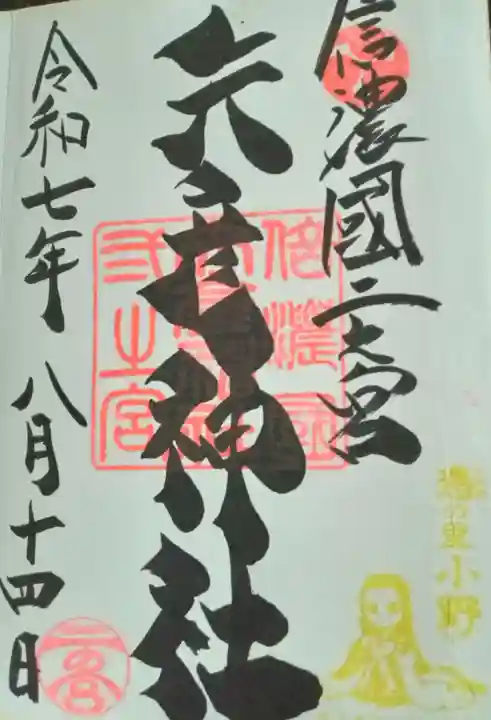 信濃國二之宮
矢彦神社
令和七年八月十四日
信濃國
弐之宮
二宮
憑の里
小野